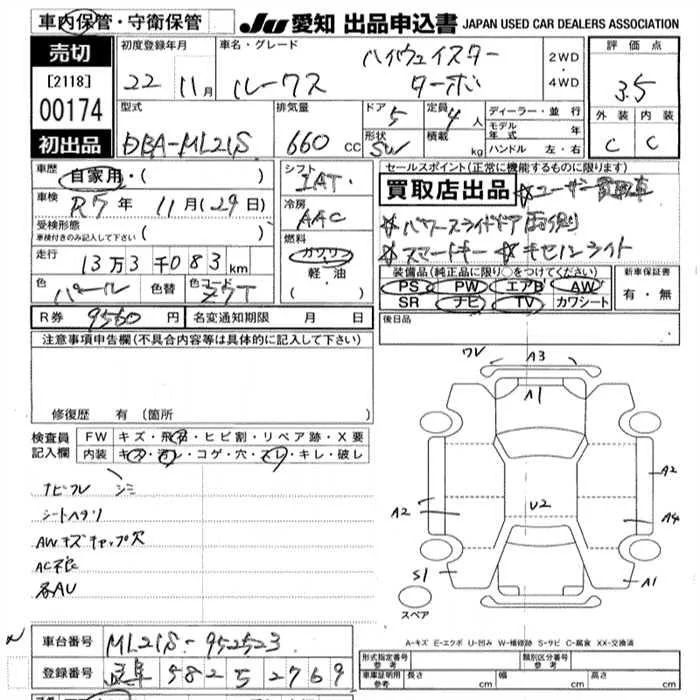 車内保管・守衛保管
JU 愛知 出品申込書 JAPAN USED CAR DEALERS ASSOCIATION
売切
[2118]
00174
初出品
初度登録年月
22 11月
車名・グレード
ハイウェイスター
ルークス ターボ
2WD
・
4WD
評価点
3.5
外装 内装
C C
型式
DBA-ML21S
排気量
660 CC
ドア 5
形状
定員 4人
積載 kg
ディーラー・並行
モデル年式 年
ハンドル 左・右
車歴
自家用・( )
車検 R7年 11月(29日)
受検形態
車検付きのみ記入して下さい ( )
走行 13万3千083km
色 パール 色替 色コード
R券 9560円 名変通知期限 月 日
シフト
IAT
冷房
AAC
燃料
ガソリン
軽・油
( )
セールスポイント(正常に機能するものに限ります)
買取店出品 ☆ユーザー買取車
☆パワースライドドア両側
☆スマートキー ☆キセノンライト
装備品(純正品に限り○をつけてください)
PS PW エアB AW
SR ナビ TV カワシート
新車保証書
有・無
後日品
注意事項申告欄(不具合内容等は具体的に記入して下さい)
修復歴 有 (箇所
検査員
記入欄
FW キズ・飛石・ヒビ割・リペア跡・X要
内装 キズ・汚レ・コゲ・穴・スレ・キレ・破レ
ナビフレ シミ
シートヘタリ
AWキズキャップ欠
AC不良
各AU
ワレ A3
A1
A2
A2
U2
A4
S1
A1
スペア
A-キズ E-エクボ U-凹み W-補修跡 S-サビ C-腐食 XX-交換済
車台番号 ML21S-952523
登録番号 岐阜 582 5 2769
形式指定番号
参考
類別区分番号
参考
車庫証明用
参考
長さ cm 幅 cm 高さ cm